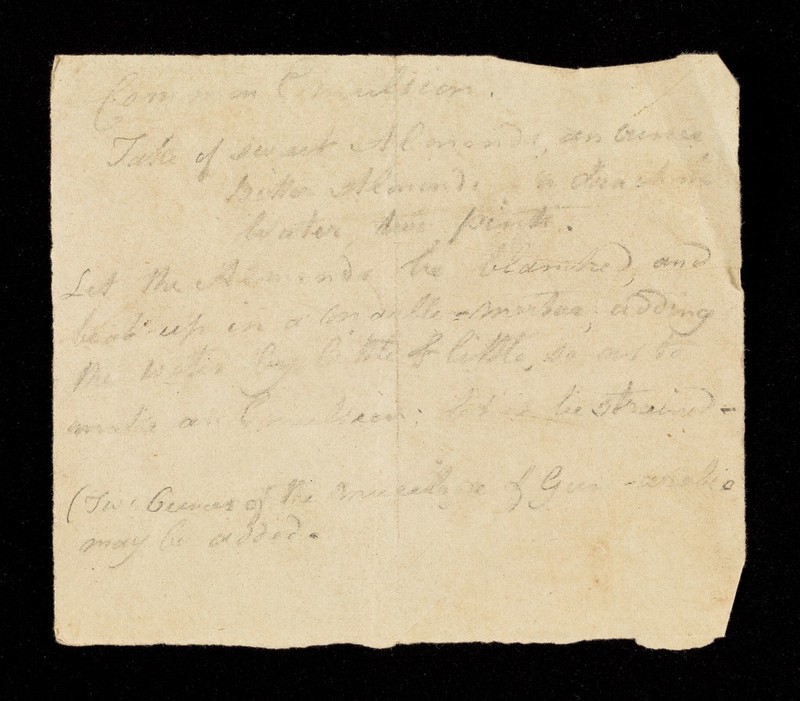 Common Emulsion.
Take of sweet Almonds, an ounce
bitter Almonds a drachm
water, two pints.
Let the Almonds be blanched, and
beat up in a marble-mortar, adding
the water by little & little, so as to
make an Emulsion; let it be strained-
(Two Ounces of the mucilage of Gum-arabic
may be added.